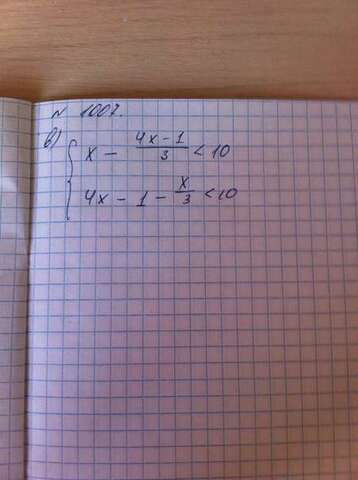 № 1007.
в) { x - \frac{4x-1}{3} < 10
4x - 1 - \frac{x}{3} < 10